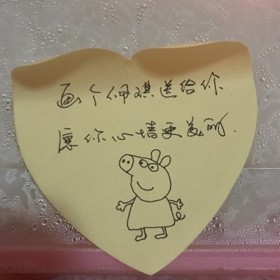 画个佩琪送给你
愿你心情更美丽.